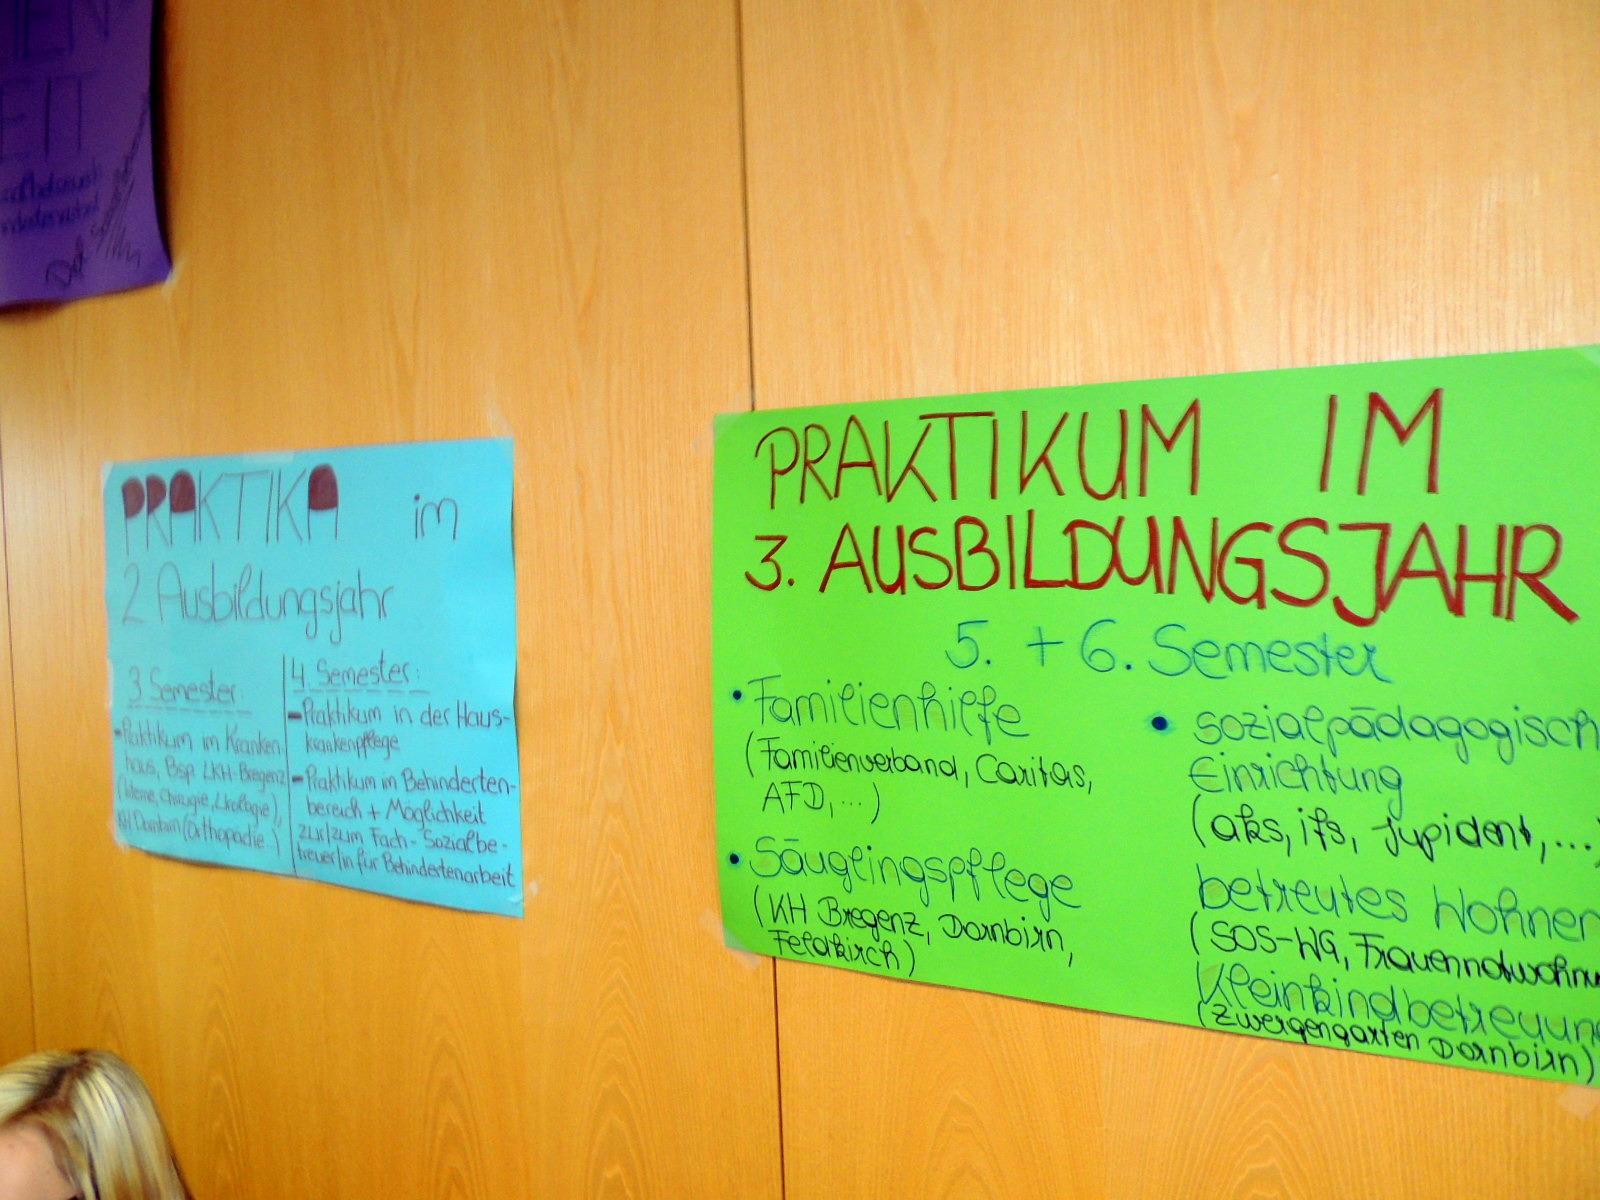 EN
EIT
PRAKTIKA im
2 Ausbildungsjahr
3 Semester:
-Praktikum im Kranken-
haus, Bsp LKH-Bregenz
(Interne, Chirugie, Urologie),
KH Dornbirn (Orthopädie..)
4. Semester:
-Praktikum in der Haus-
krankenpflege
-Praktikum im Behinderten-
bereich + Möglichkeit
zur/zum Fach-Sozialbe-
treuer/in für Behindertenarbeit
PRAKTIKUM IM
3. AUSBILDUNGSJAHR
5. + 6. Semester
• Familienhilfe
(Familienverband, Caritas,
AFD, ...)
• Säuglingspflege
(KH Bregenz, Dornbirn,
Feldkirch)
• sozialpädagogisch
Einrichtung
(aks, ifs, jupident, ...)
betreutes Wohnen
(SOS-WG, Frauennotwohnu
Kleinkindbetreuun
(Zwergengarten Dornbirn)